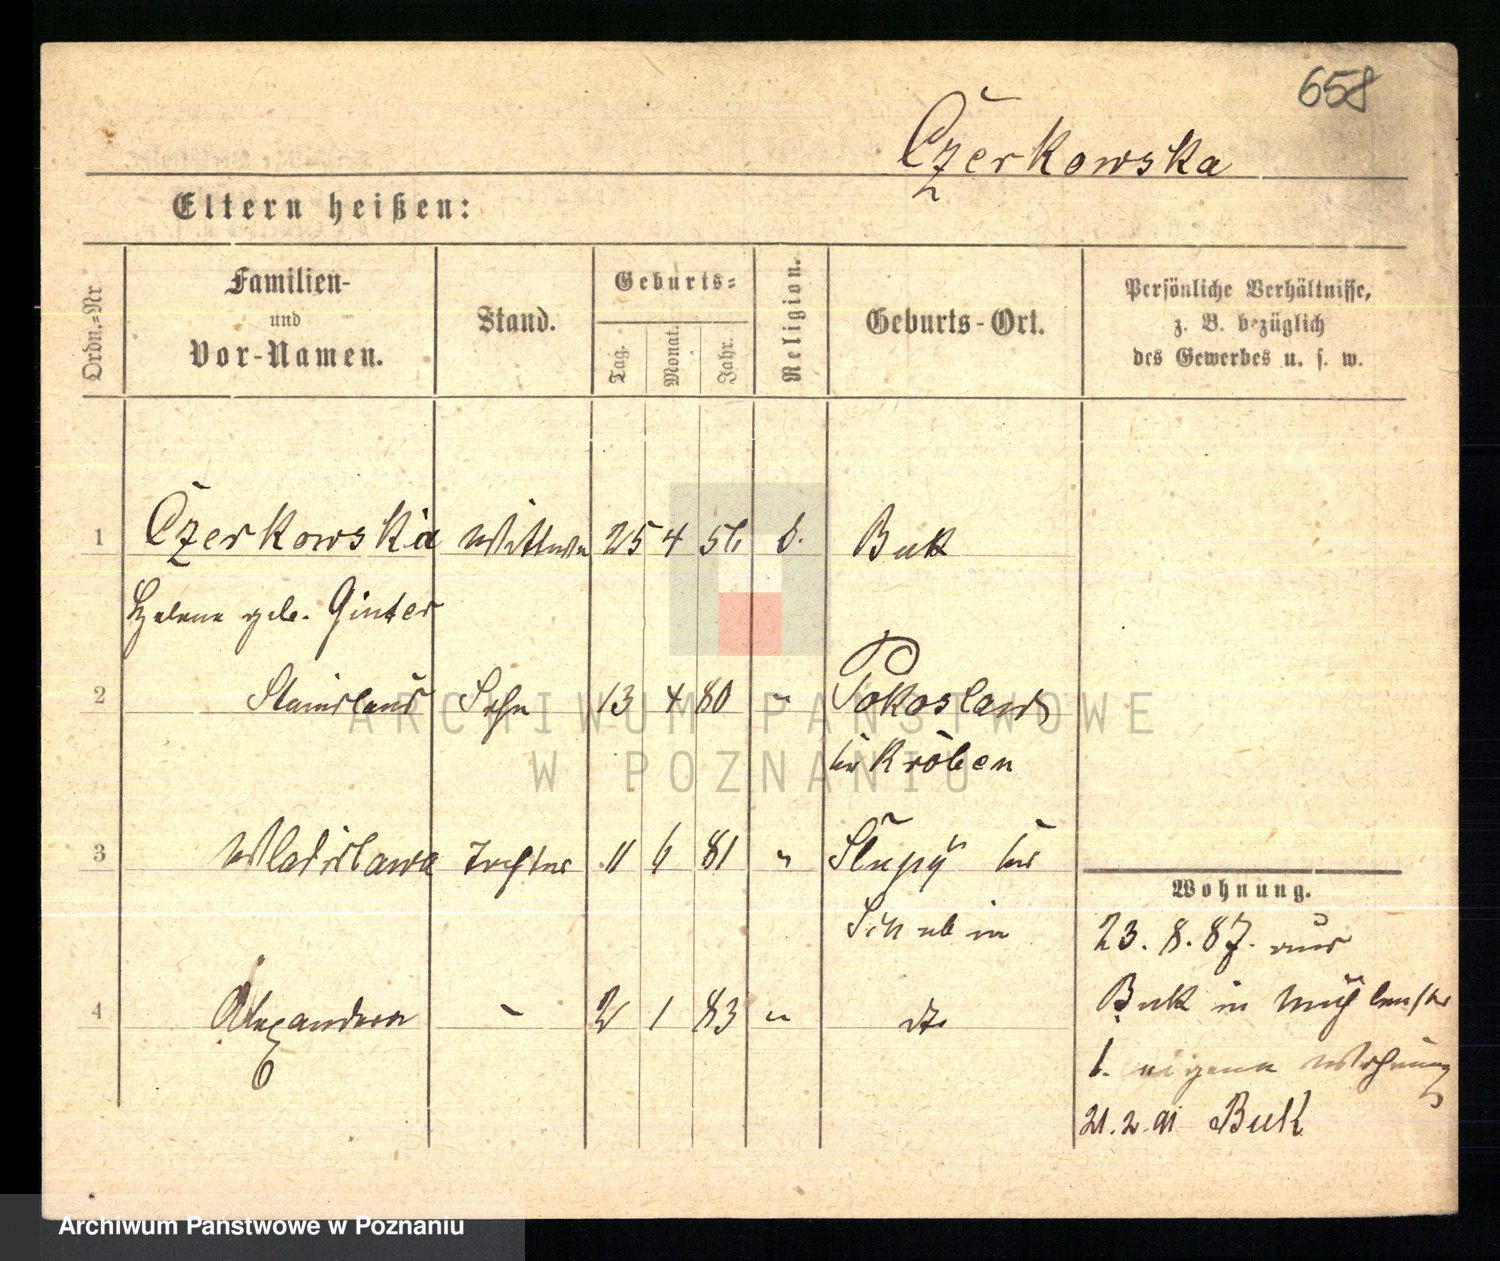 658
Czerkowska
Eltern heißen:
Ordn.-Nr
Familien-
und
Vor-Namen.
Stand.
Geburts-
Tag.
Monat.
Jahr.
Religion.
Geburts-Ort.
Persönliche Verhältnisse,
z. B. bezüglich
des Gewerbes u. s. w.
1 Czerkowska Wittwe 25 4 56 k. Buk
Helene geb. Ginter
2 Stanislaus Sohn 13 4 80 " Pokoslaw
bei Kröben
3 Wladislawa Tochter 11 6 81 " Slupy bei
Schubin
4 Alexandera - 2 1 83 " dto
Wohnung.
23. 8. 87. aus
Buk in Mühlenstr
1. eigene Wohnung
21.2.91 Buk
ARCHIWUM PAŃSTWOWE
W POZNANIU
Archiwum Państwowe w Poznaniu